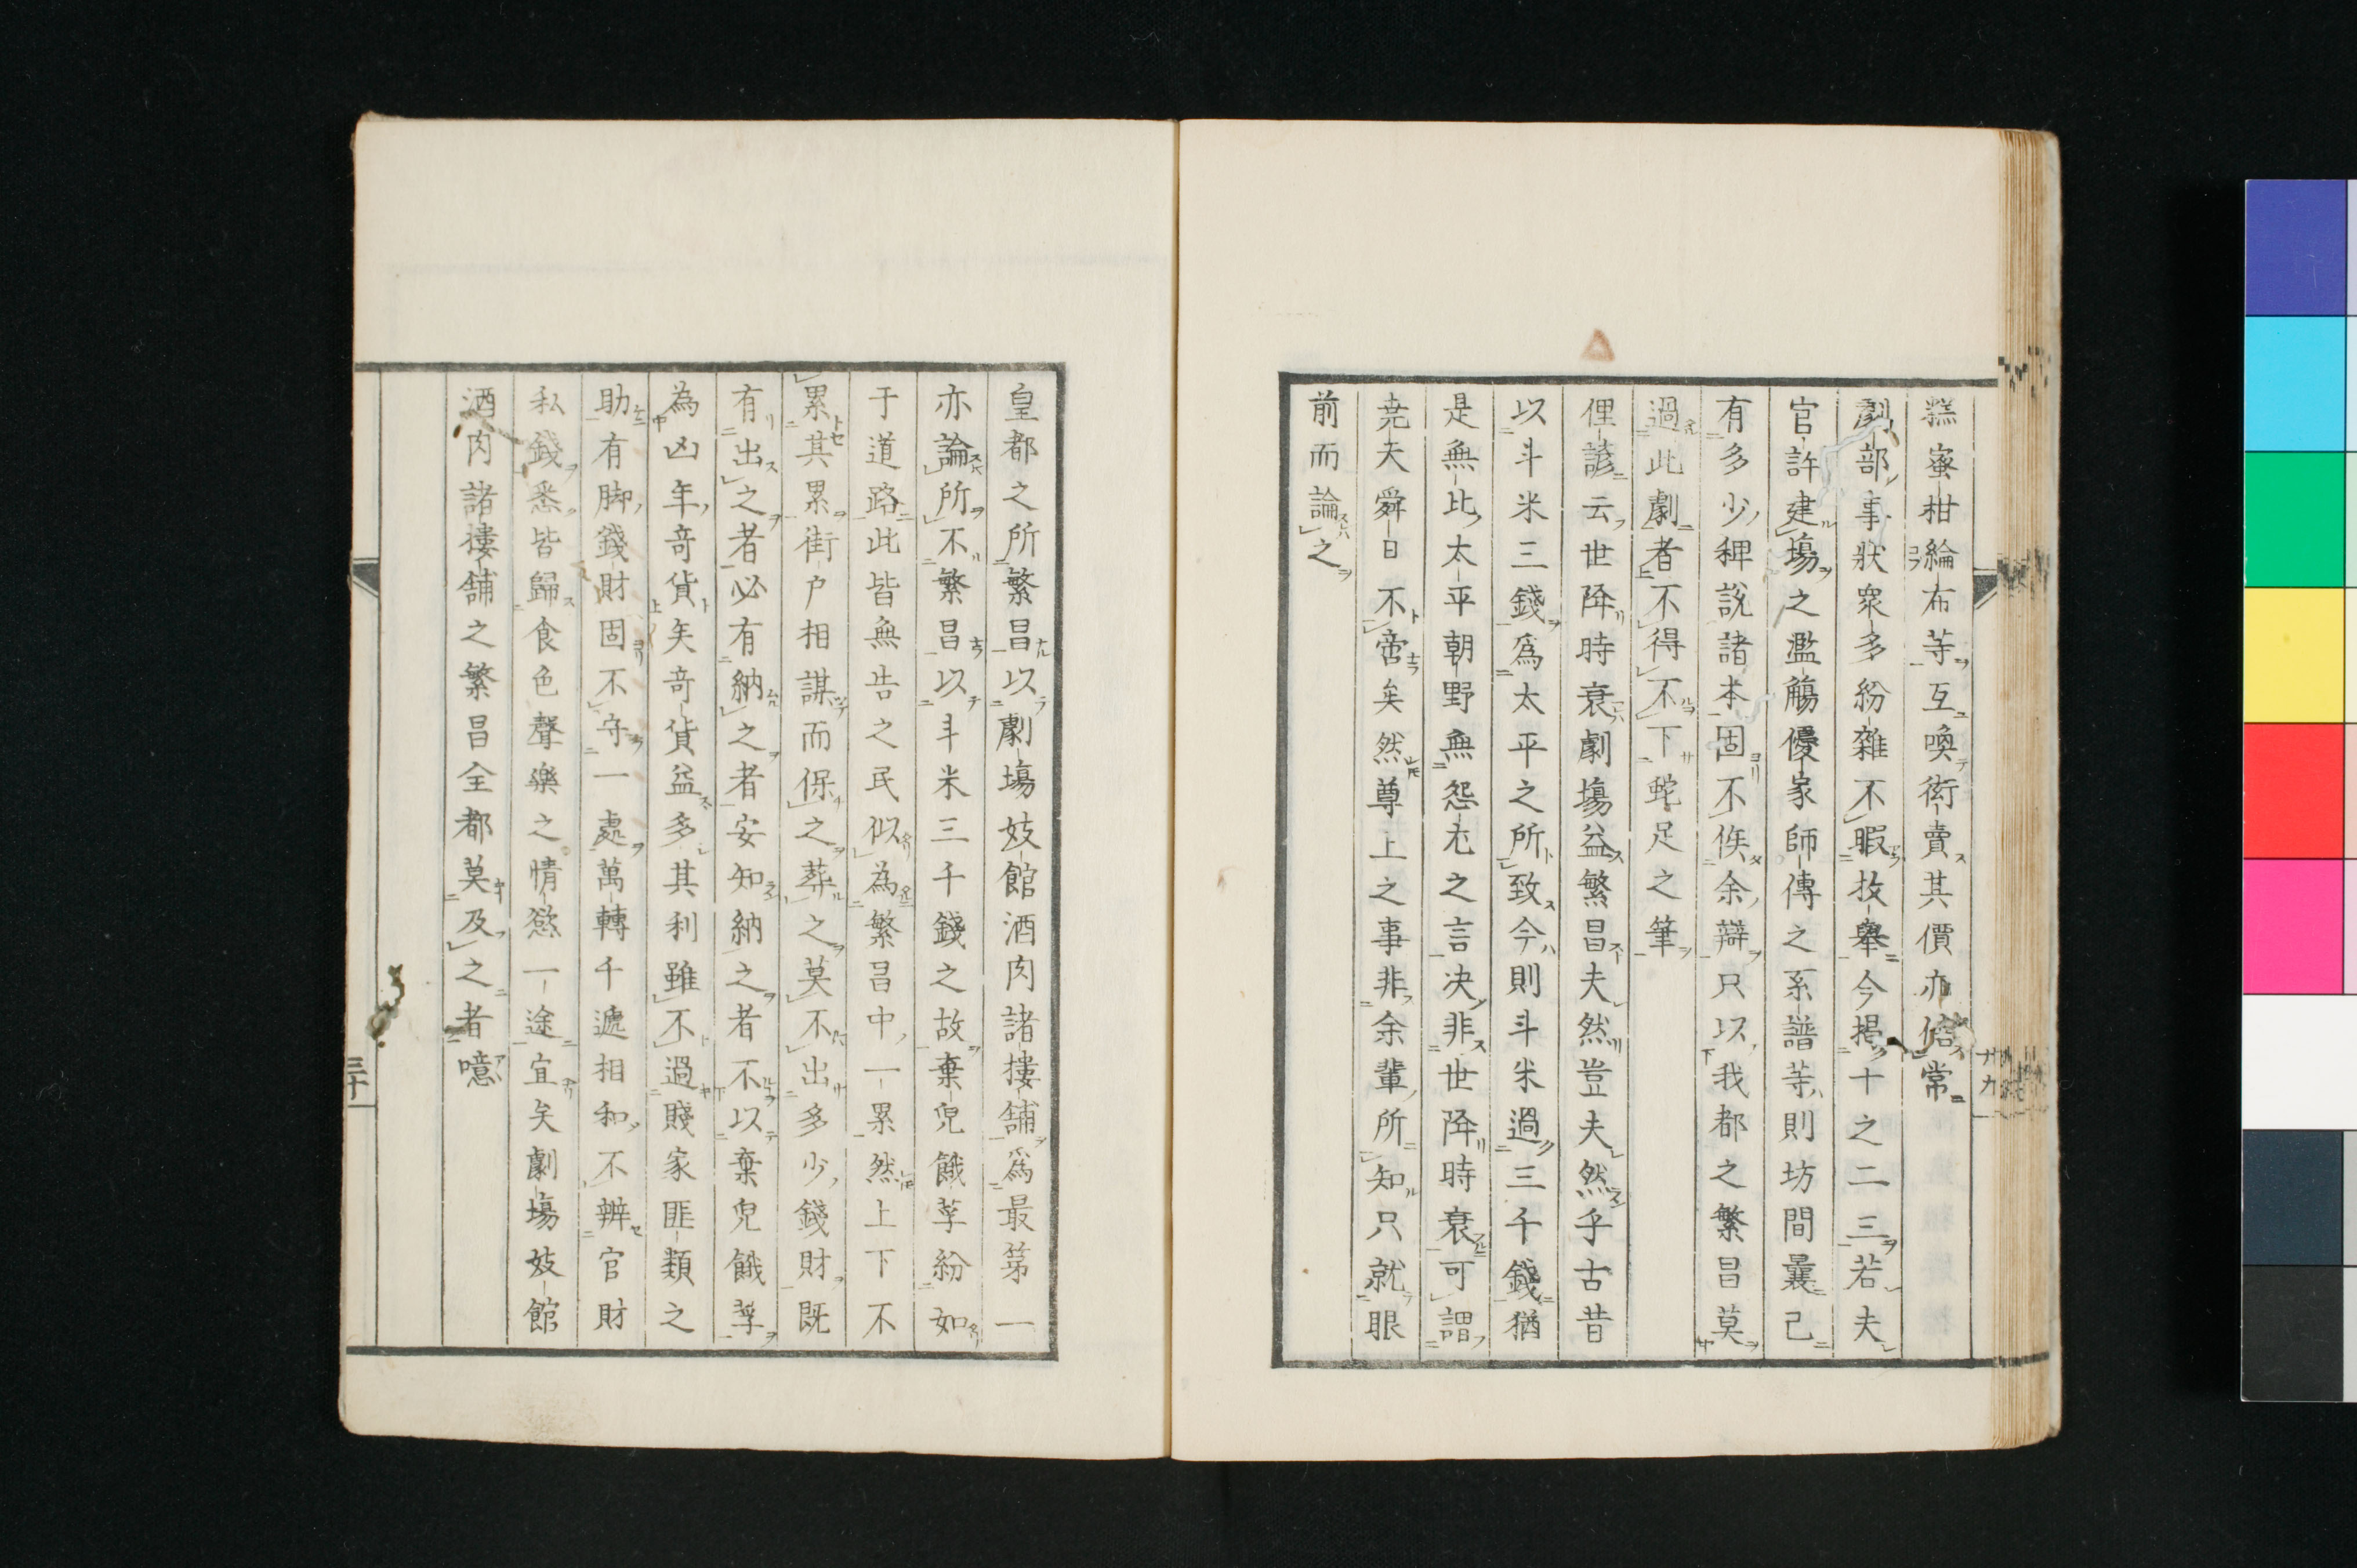 糕蜜柑綸布等互喚衒賣其價亦倍常
劇部事狀衆多紛雜不暇枚擧今揭十之二三若夫
官許建塲之濫觴優家師傳之系譜等則坊間曩已
有多少稗説諸本固不俟余辯只以我都之繁昌莫
過此劇者不得不下蛇足之筆
俚諺云世降時衰劇塲益繁昌夫然豈夫然乎古昔
以斗米三錢爲太平之所致今則斗米過三千錢猶
是無比太平朝野無怨尤之言决非世降時衰可謂
尭天舜日不啻矣然尊上之事非余輩所知只就眼
前而論之
十九
皇都之所繁昌以劇塲妓館酒肉諸樓舗爲最第一
亦論所不繁昌以斗米三千錢之故棄兒餓莩紛如
于道路此皆無告之民似為繁昌中一累然上下不
累其累街戸相謀而保之葬之莫不出多少錢財既
有出之者必有納之者安知納之者不以棄兒餓莩
為凶年竒貨矣竒貨益多其利雖不過賤家匪類之
助有脚錢財固不守一處萬轉千遞相和不辨官財
私錢悉皆歸食色聲樂之情慾一途宜矣劇塲妓館
酒肉諸樓舗之繁昌全都莫及之者噫
三十